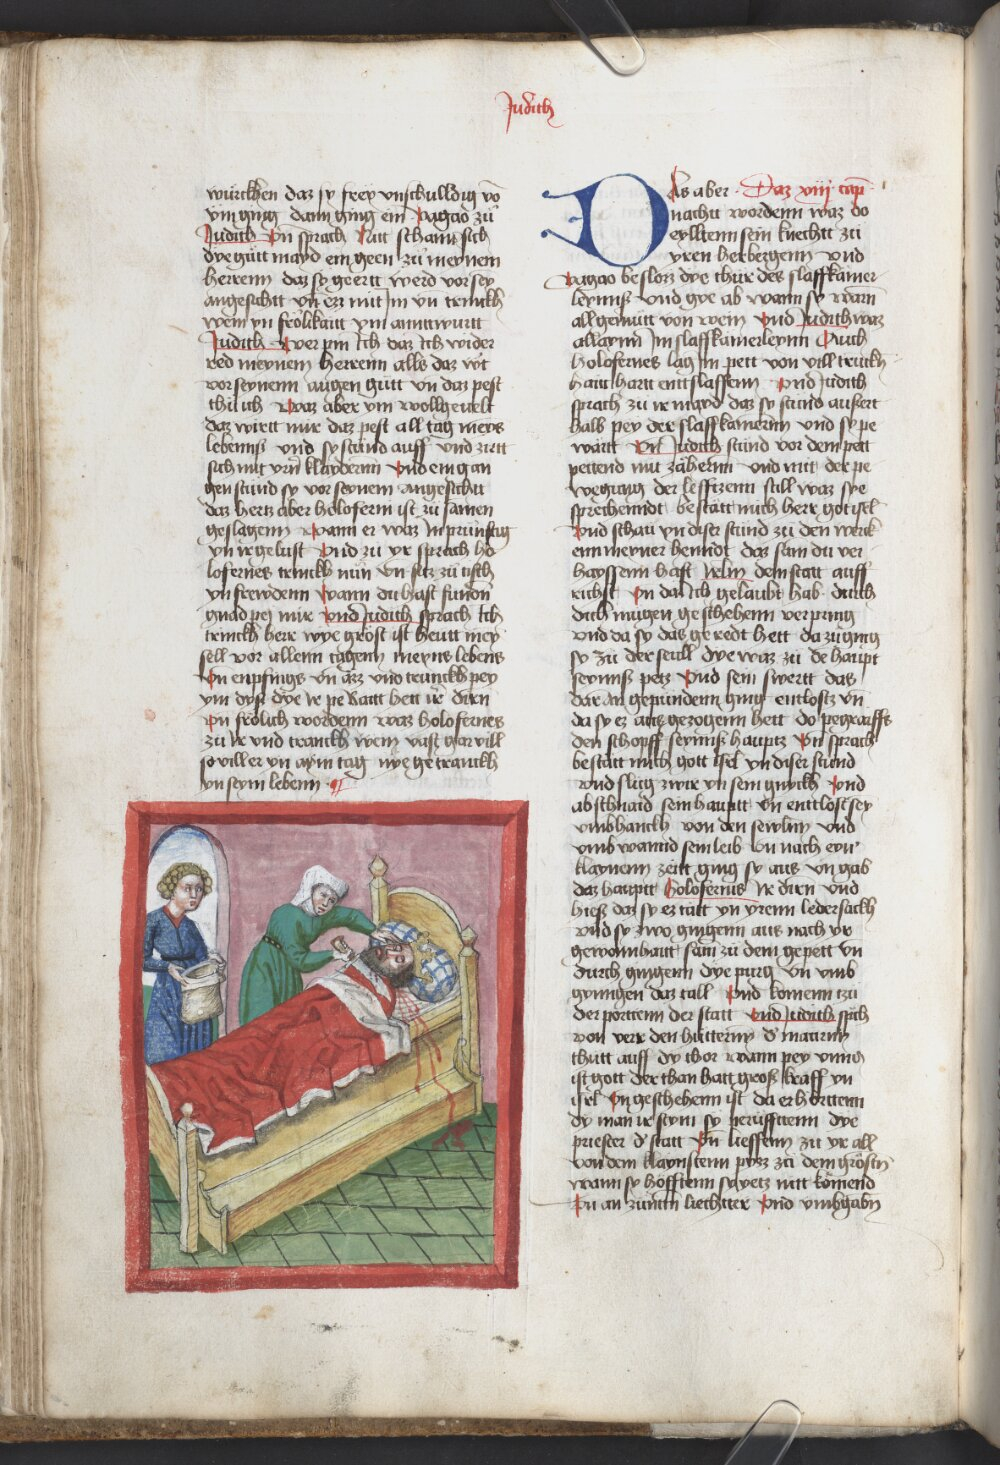 Judith
würcken daz sy frey vnschuldig vō
ym ging dann ging ein Vagao zu
Judith vn sprach Nitt scham sich
dye gütt mayd ein geen zu meynem
herrenn daz sy geertt werd vor seym
angesichtt vn ezz mit Im vn trinckh
wein yn frölikaitt ym anntwurtt
Judith Wer pin Ich daz Ich wider
red meynem herrenn alls daz wirt
vor seynenn augen gütt vn daz pest
thu ich Waz aber ym wollgeuelt
daz wirtt mir daz pest all tag meyns
lebenns vnd sy stund auff vnd zirtt
sich mit yrn klaydernn vnd ein gan
gen stund sy vor seynem angesichtt
daz hertz aber holofernn ist zu samen
geslagenn Wann er waz Inprünstig
yn ir gelust vnd zu yr sprach ho
lofernes trinckh nun vn sitz zu tisch
yn frewdenn Wann du hast funden
gnad pey mir vnd Judith sprach Ich
trinckh herr wye gröst ist heutt mey
sell vor allenn tagenn meyns lebens
vn enpfings vn azz vnd trunckh pey
ym dyse dye ir peraitt hett ir dirn
vn frölich wordenn waz holofernes
zu ir vnd tranckh wein vast gar vill
so vill er yn aym tag nye getranckh
yn seym lebenn
Als aber Daz xiij cap
nachtt wordenn waz do
eylltenn sein knechtt zu
yren herbergenn vnd
Vagao besloz dye thür des slaffkamer
leynnß vnd gye ab wann sy warn
all gemütt von wein vnd Judith waz
allaynn Im slaffkamerleynn Auch
holofernes lag Im pett von vill trunckh
haitt hartt enttslaffenn vnd Judith
sprach zu ir mayd daz sy stund außert
halb pey der slaffkamernn vnd sy pe
wartt vn Judith stund vor dem pett
pettend mit zähernn vnd mitt der pe
wegung der leffzenn still waz sye
sprechenndt bestätt mich herr got isrl
vnd schau yn diser stund zu den werck
enn meyner henndt daz sam du ver
hayssenn hast Jrlm dein statt auff
richst vn daz Ich gelaubt hab durch
dich mügen geschehenn verpring
vnd da sy das geredt hett da zu ging
sy zu der seull dye waz zu de haupt
seynns petz vnd sein swertt das
dar an gepundenn ging entlostz vn
da sy ez aus gezogenn hett do pegraiffs
den schopff seynns hauptz vn sprach
bestatt mich gott isrl yn diser stund
vnd slug zwir yn sein gnyckh vnd
ab schnaid sein hauptt vn enttlost sey
vmbhanckh von den sewlnn vnd
vmb wannd sein leib vn nach eyn
klaynenn zeitt ging sy aus vn gab
daz hauptt holofernus ir dirn vnd
hieß daz sy ez tätt yn yrenn ledersackh
vnd sy zwo gingenn aus nach yr
gewonnhaitt sam zu dem gepett vn
durch gingenn dye purg vn vmb
gyngen daz tall vnd komenn tzu
der porttenn der statt vnd Judith spch
von verr den hütternn d' mawrnn
thutt auff dy thor wann pey vnns
ist gott der than hatt groß krafft yn
isrl vn geschehenn ist da er horttenn
dy man ir stym sy herüfftenn dye
priester d' statt vn lieffenn zu yr all
von dem klaynstenn pyzz zu dem gröstn
wann sy hofftenn sy yetz nitt komend
vn an zuntn liechtter vnd vmbgabn